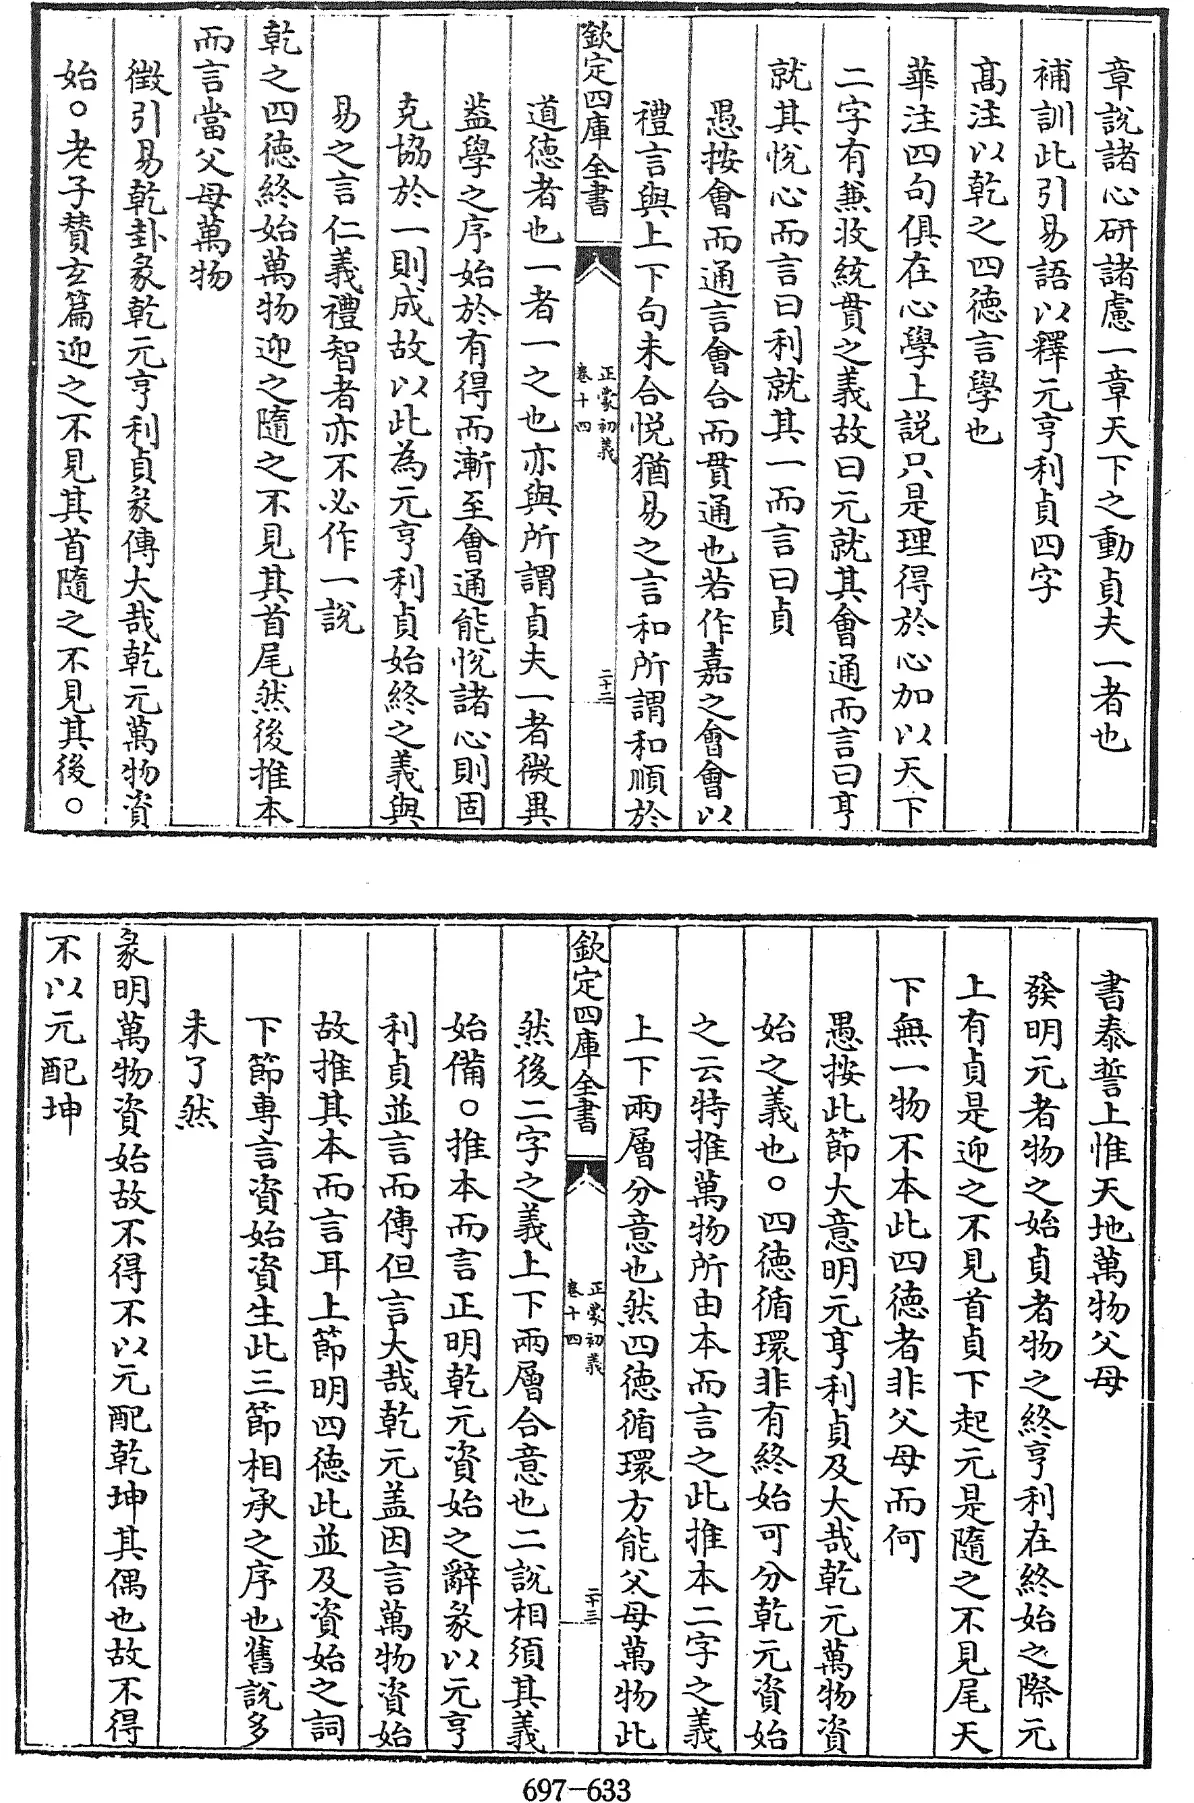 章說諸心研諸慮一章天下之動貞夫一者也
補訓此引易語以釋元亨利貞四字
高注以乾之四德言學也
華注四句俱在心學上說只是理得於心加以天下
二字有兼收統貫之義故曰元就其會通而言曰亨
就其悅心而言曰利就其一而言曰貞
愚按會而通言會合而貫通也若作嘉之會會以
禮言與上下句未合悅猶易之言和所謂和順於
欽定四庫全書
正蒙初義
卷十四
二十二
道德者也一者一之也亦與所謂貞夫一者微異
葢學之序始於有得而漸至會通能悅諸心則固
克協於一則成故以此為元亨利貞始終之義與
易之言仁義禮智者亦不必作一說
乾之四德終始萬物迎之隨之不見其首尾然後推本
而言當父母萬物
徵引易乾卦彖乾元亨利貞彖傳大哉乾元萬物資
始○老子贊玄篇迎之不見其首隨之不見其後○
書泰誓上惟天地萬物父母
發明元者物之始貞者物之終亨利在終始之際元
上有貞是迎之不見首貞下起元是隨之不見尾天
下無一物不本此四德者非父母而何
愚按此節大意明元亨利貞及大哉乾元萬物資
始之義也○四德循環非有終始可分乾元資始
之云特推萬物所由本而言之此推本二字之義
上下兩層分意也然四德循環方能父母萬物此
欽定四庫全書
正蒙初義
卷十四
二十三
然後二字之義上下兩層合意也二說相須其義
始備○推本而言正明乾元資始之辭彖以元亨
利貞並言而傳但言大哉乾元蓋因言萬物資始
故推其本而言耳上節明四德此並及資始之詞
下節專言資始資生此三節相承之序也舊說多
未了然
彖明萬物資始故不得不以元配乾坤其偶也故不得
不以元配坤
697-633